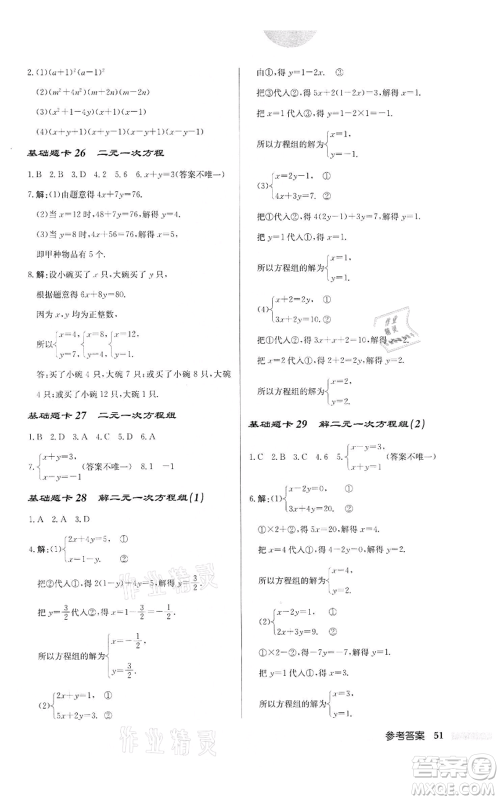 2.(1)(a+1)²(a-1)²
(2)(m²+4m+2)(m²+4n+2)
(3)(x²+1-4y)(x²+1+4y)
(4)(x+y+1)(x-y+1)(x+y-1)(x-y-1)
基础题卡 26 二元一次方程
1.B 2.B 3.D 4.2 5.6 6.x+y=3(答案不唯一)
7.解:(1)由题意得4x+7y=76.
(2)当x=12时,48+7y=76,解得y=4.
(3)当y=8时,4x+56=76,解得x=5.
即甲种物品有5个.
8.解:设小碗买了x只,大碗买了y只.
根据题意得6x+8y=80.
因为x,y均为正整数,
所以{x=4,y=7. {x=8,y=4. {x=12,y=1.
答:买了小碗4只,大碗7只或买了小碗8只,大碗
4只或买了小碗12只,大碗1只.
基础题卡 27 二元一次方程组
1.B 2.D 3.A 4.C 5.D 6.D
7.{x+y=3,x-y=-1(答案不唯一) 8.1 -1
基础题卡 28 解二元一次方程组(1)
1.A 2.D 3.A
4.解:(1){2x+4y=5, ① x=1-y. ②
把②代入①,得2(1-y)+4y=5,解得y=3/2.
把y=3/2代入②,得x=-1/2.
所以方程组的解为{x=-1/2,y=3/2.
(2){2x+y=1, ① 5x+2y=3. ②
由①,得y=1-2x. ③
把③代入②,得5x+2(1-2x)=3,解得x=1.
把x=1代入③,得y=-1.
所以方程组的解为{x=1,y=-1.
(3){x=2y-1, ① 3x+4y=17. ②
把①代入②,得3(2y-1)+4y=17,解得y=2.
把y=2代入①,得x=3.
所以方程组的解为{x=3,y=2.
(4){x+2=2y, ① 3x+2y=10. ②
把①代入②,得3x+x+2=10,解得x=2.
把x=2代入①,得y=2.
所以方程组的解为{x=2,y=2.
基础题卡 29 解二元一次方程组(2)
1.C 2.B 3.D 4.1 5.{x-y=1,x+y=3(答案不唯一)
6.解:(1){x-2y=0, ① 3x+2y=8. ②
①+②,得4x=8,解得x=2.
把x=2代入①,得2-2y=0,解得y=1.
所以方程组的解为{x=2,y=1.
(2){x-2y=1, ① 2x+3y=9. ②
①×2-②,得-7y=-7,解得y=1.
把y=1代入①,得x=3.
所以方程组的解为{x=3,y=1.
参考答案 51
作业精灵
作业精灵
作业精灵
答案圈
MXQE.COM